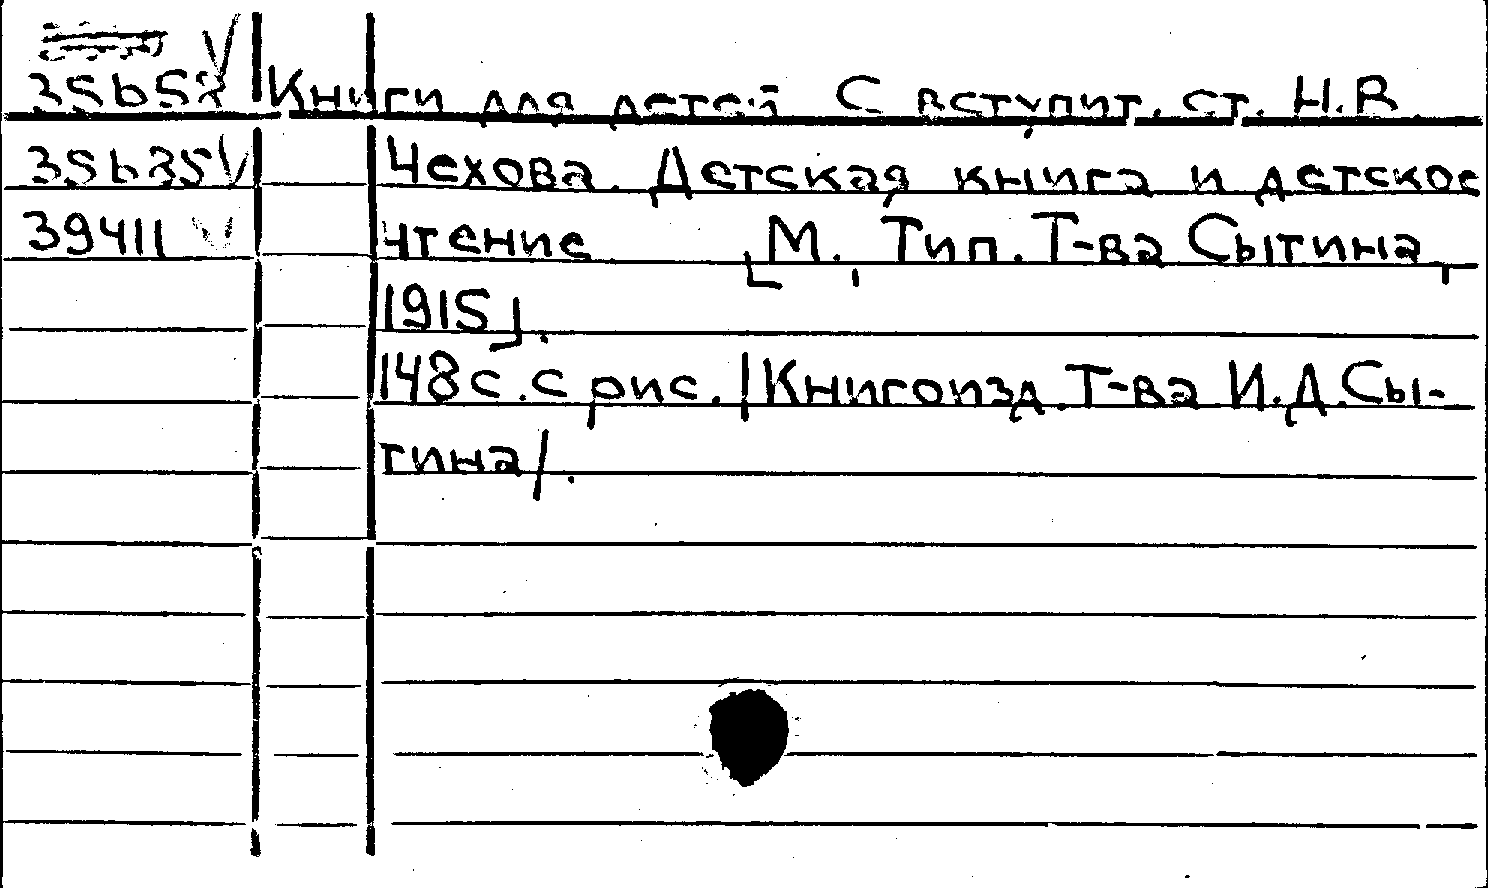 35658 V Книги для детей С вступит. ст. Н.В.
35635 V Чехова. Детская книга и детское
39411 V чтение [М., Тип. Т-ва Сытина,
1915].
148 с. с рис. /Книгоизд. Т-ва И.Д. Сы-
тина/.